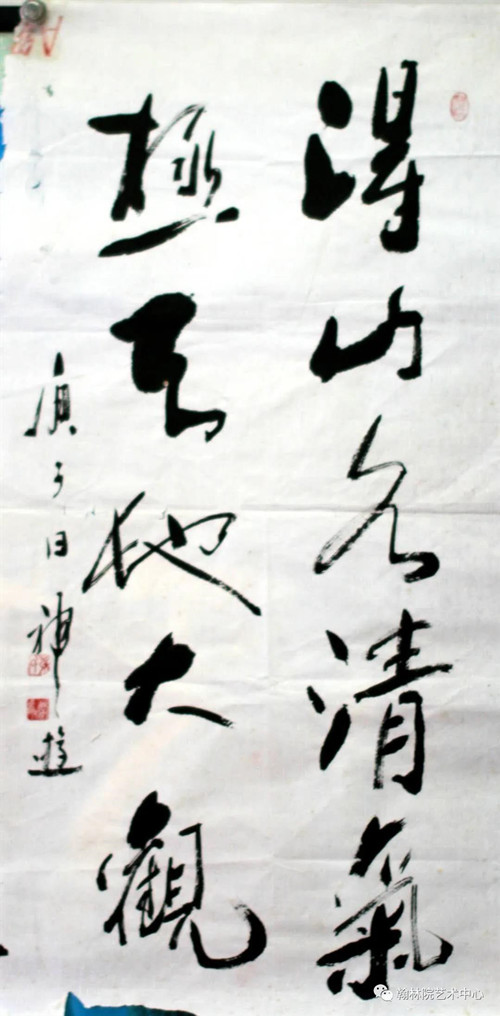 得山水清氣
極天地大觀
庚子日神遊
翰林院艺术中心